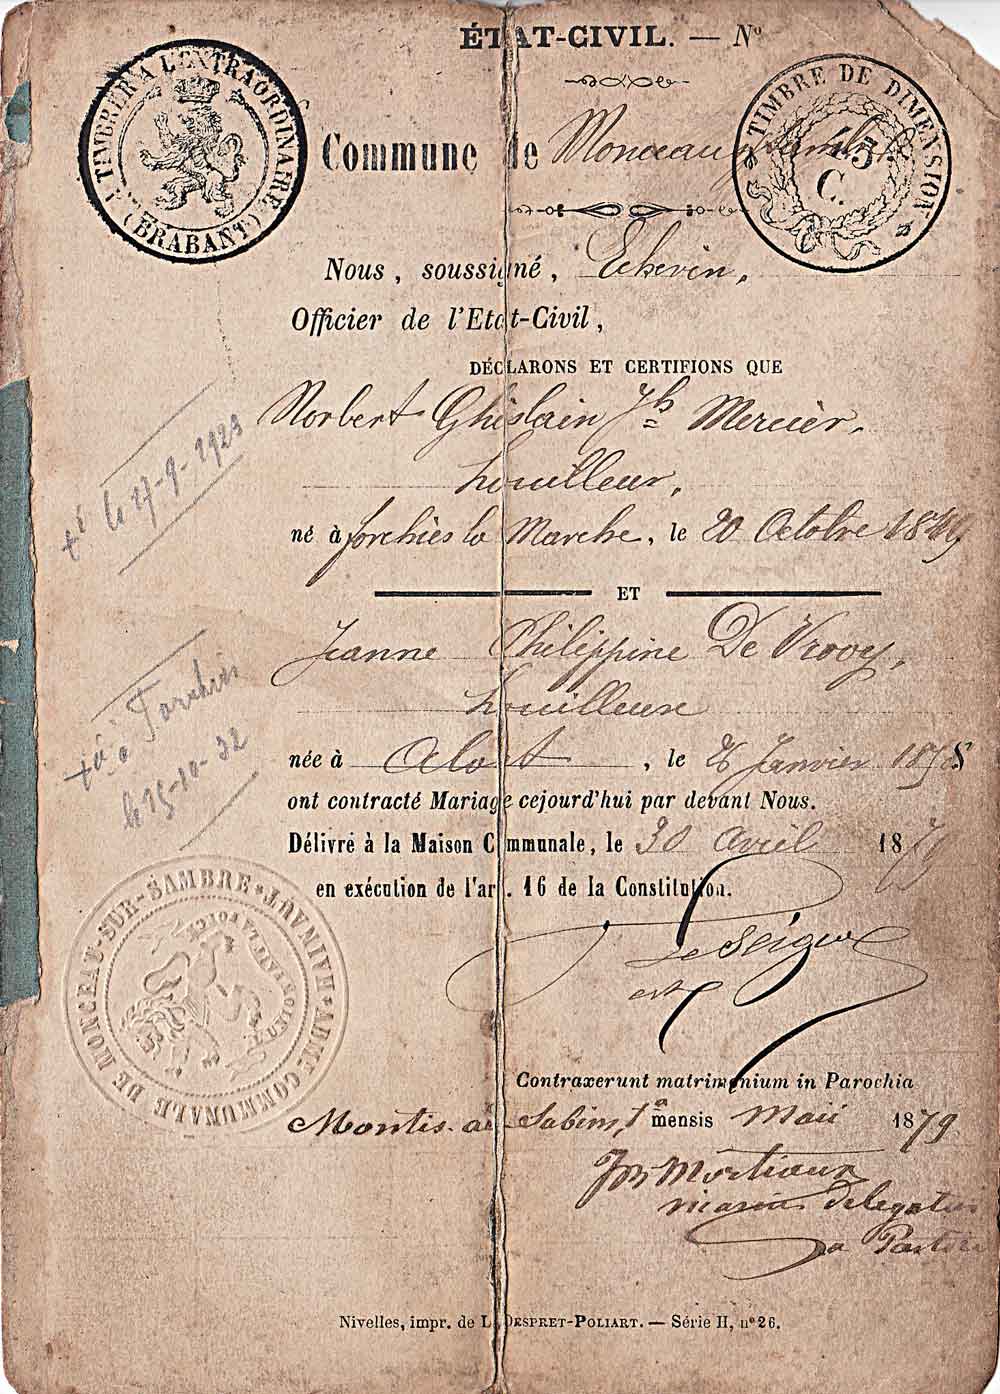 ÉTAT-CIVIL. — N°
TIMBRER A L'EXTRAORDINAIRE (BRABANT)
TIMBRE DE DIMENSION
45 C.
Commune de Monceau s/Sambre
Nous, soussigné, Echevin,
Officier de l'Etat-Civil,
DÉCLARONS ET CERTIFIONS QUE
Norbert Ghislain Jh Mercier,
houilleur,
né à forchies la Marche, le 20 Octobre 1849
+é le 17-9-1923
ET
Jeanne Philippine De Vrooy,
houilleuse
née à Alost, le 26 Janvier 1858
+é à Forchies
le 15-10-32
ont contracté Mariage cejourd'hui par devant Nous.
Délivré à la Maison Communale, le 30 Avril 1879
en exécution de l'art. 16 de la Constitution.
ADME COMMUNALE DE MONCEAU-SUR-SAMBRE * HAINAUT *
Contraxerunt matrimonium in Parochia
Montis ad Sabim, 1a mensis Maii 1879
vicarius delegatus
a Pastore
Nivelles, impr. de L. DESPRET-POLIART. — Série II, n° 26.